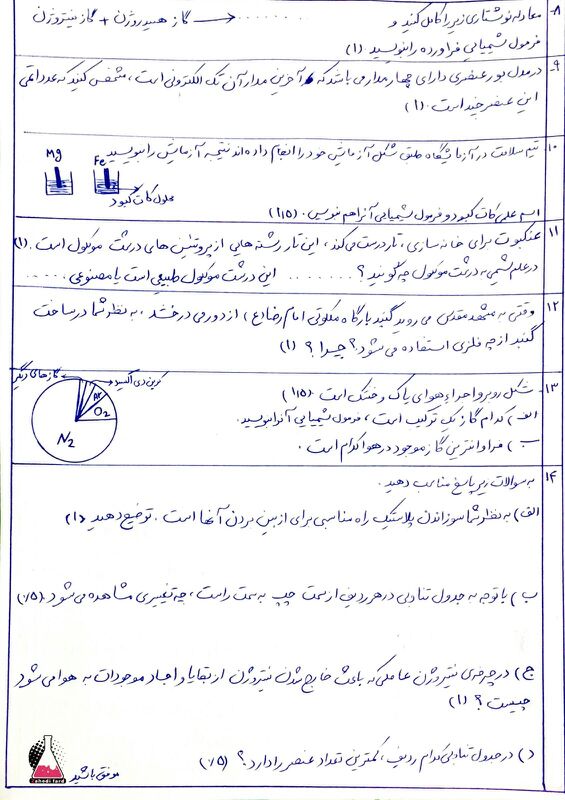 ۸- معادله نوشتاری زیر را کامل کنید و ........ ⟵ گاز هیدروژن + گاز نیتروژن
فرمول شیمیایی فراورده را بنویسید. (۱)
۹- در مدل بور عنصری دارای چهار مدار می باشد که آخرین مدار آن تک الکترونی است، مشخص کنید که عدد اتمی
این عنصر چند است. (۱)
۱۰- تیم سلامت در آزمایشگاه طبق شکل آزمایش خود را انجام داده اند نتیجه آزمایش را بنویسید
Mg
Fe
محلول کات کبود
اسم علمی کات کبود و فرمول شیمیایی آنرا هم بنویس. (۱/۵)
۱۱ عنکبوت برای خانه سازی، تار درست می کند، این تار رشته هایی از پروتئین های درشت مولکول است. (۱)
در علم شیمی به درشت مولکول چه گویند؟ ........ این درشت مولکول طبیعی است یا مصنوعی .....
۱۲ وقتی به مشهد مقدس می روید گنبد بارگاه ملکوتی امام رضا(ع) از دور می درخشد، به نظر شما در ساخت
گنبد از چه فلزی استفاده می شود؟ چرا؟ (۱)
۱۳- شکل روبرو اجزاء هوای پاک و خشک است. (۱/۵)
الف) کدام گاز یک ترکیب است، فرمول شیمیایی آنرا بنویسید.
ب) فراوانترین گاز موجود در هوا کدام است.
گازهای دیگر
کربن دی اکسید
Ar
O2
N2
۱۴ به سوالات زیر پاسخ مناسب دهید.
الف) به نظر شما سوزاندن پلاستیک راه مناسبی برای از بین بردن آنها است. توضیح دهید (۱)
ب) با توجه به جدول تناوبی در هر ردیف از سمت چپ به سمت راست، چه تغییری مشاهده می شود. (۰/۷۵)
ج) در چرخه ی نیتروژن عاملی که باعث خارج شدن نیتروژن از بقایا و اجساد موجودات به هوا می شود
چیست؟ (۱)
د) در جدول تناوبی کدام ردیف، کمترین تعداد عنصر را دارد؟ (۰/۷۵)
موفق باشید